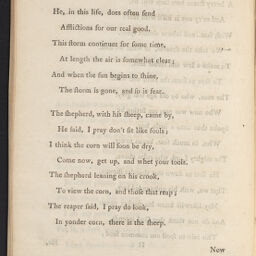 He, in this life, does often ſend
Afflictions for our real good.
This ſtorm continues for ſome time,
At length the air is ſomewhat clear;
And when the ſun begins to ſhine,
The ſtorm is gone, and ſo is fear.
The ſhepherd, with his ſheep, came by,
He ſaid, I pray don't ſit like fools;
I think the corn will ſoon be dry,
Come now, get up, and whet your tools.
The ſhepherd leaning on his crook,
To view the corn, and thoſe that reap;
The reaper ſaid, I pray do look,
In yonder corn, there is the ſheep.
Now